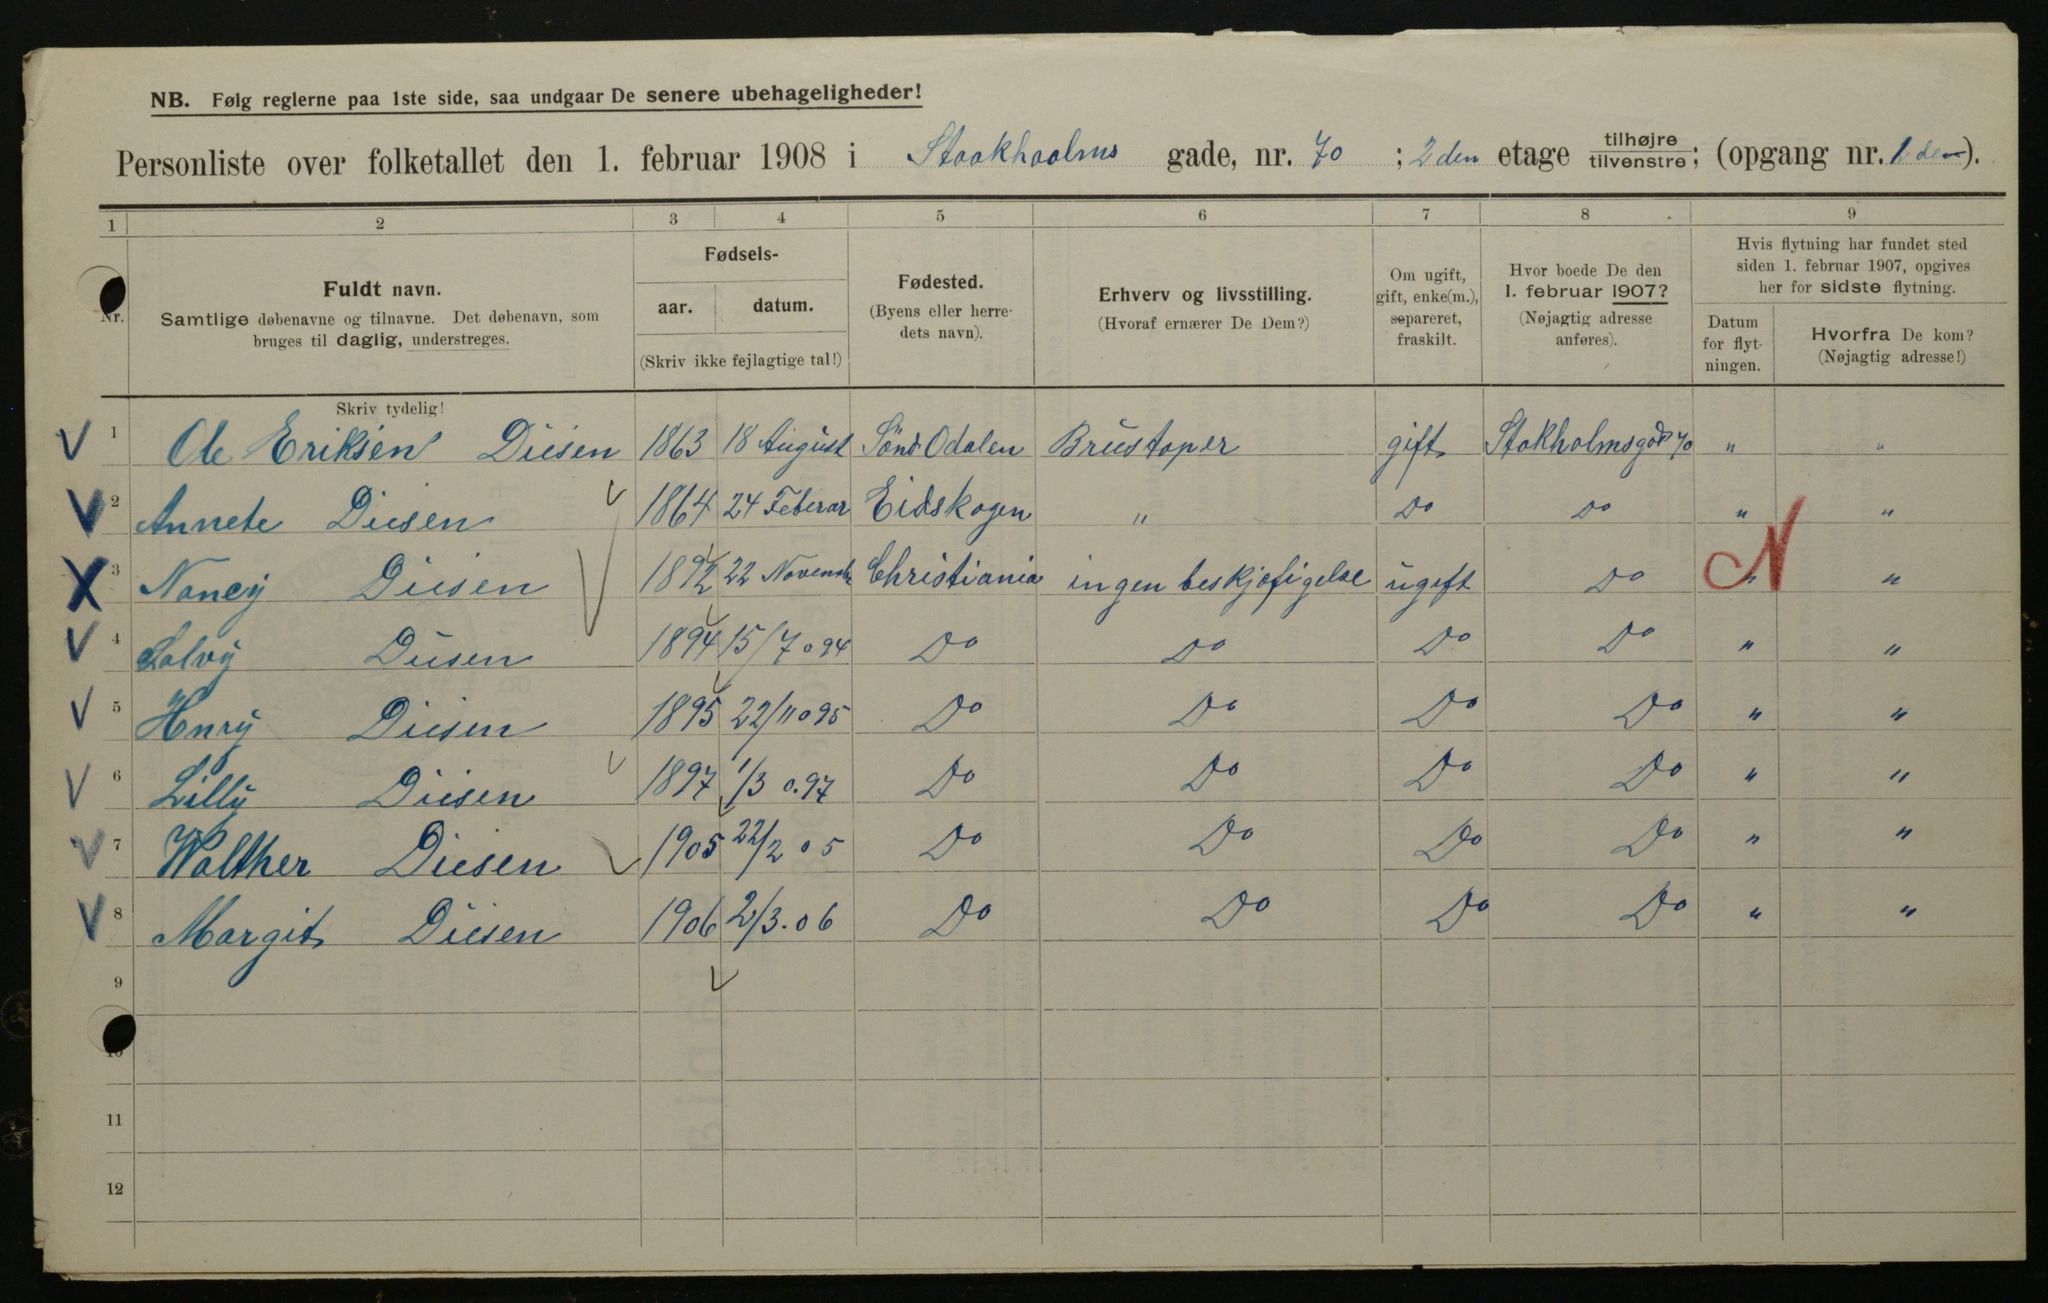 NB. Følg reglerne paa 1ste side, saa undgaar De senere ubehageligheder!
Personliste over folketallet den 1. februar 1908 i Stookhoolms gade, nr. 70 ; 2 den etage tilhøjre tilvenstre; (opgang nr. 1 den).
1 2 3 4 5 6 7 8 9
Nr.
Fuldt navn.
Samtlige døbenavne og tilnavne. Det døbenavn, som
bruges til daglig, understreges.
Skriv tydelig!
Fødsels-
aar. datum.
(Skriv ikke fejlagtige tal!)
Fødested.
(Byens eller herre-
dets navn).
Erhverv og livsstilling.
(Hvoraf ernærer De Dem?)
Om ugift,
gift, enke(m.),
separeret,
fraskilt.
Hvor boede De den
1. februar 1907?
(Nøjagtig adresse
anføres).
Hvis flytning har fundet sted
siden 1. februar 1907, opgives
her for sidste flytning.
Datum
for flyt-
ningen.
Hvorfra De kom?
(Nøjagtig adresse!)
1 Ole Eriksen Diesen 1863 18 August Sönd Odalen Brustaper gift Stokholmsgad 70 " "
2 Annete Diesen 1864 24 Feberar Eidskogen " Do Do " "
3 Nancy Diesen 1892 22 Novembr Christiania ingen beskjæfigelse ugift Do N " "
4 Solvy Diesen 1894 15/7 094 Do Do Do Do " "
5 Hnry Diesen 1895 22/11 095 Do Do Do Do " "
6 Lilly Diesen 1897 1/3 0.97 Do Do Do Do " "
7 Walther Diesen 1905 22/2 05 Do Do Do Do " "
8 Margit Diesen 1906 2/3.06 Do Do Do Do " "
9
10
11
12